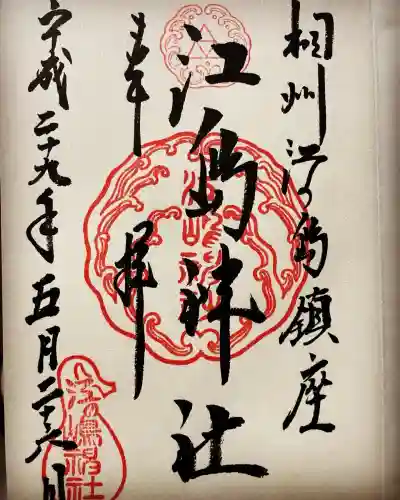 相州江の島鎮座
江島神社
奉拝
平成二十九年五月二十八日
江嶋神社